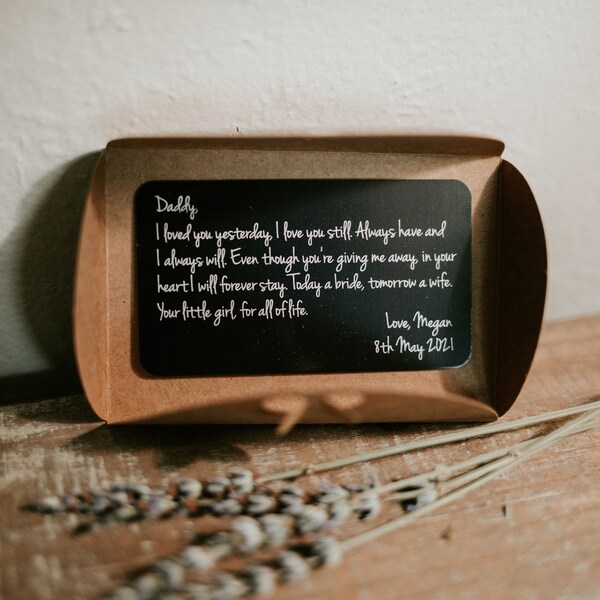 Daddy,
I loved you yesterday, I love you still. Always have and
I always will. Even though you're giving me away, in your
heart I will forever stay. Today a bride, tomorrow a wife.
Your little girl, for all of life.
Love, Megan
8th May 2021